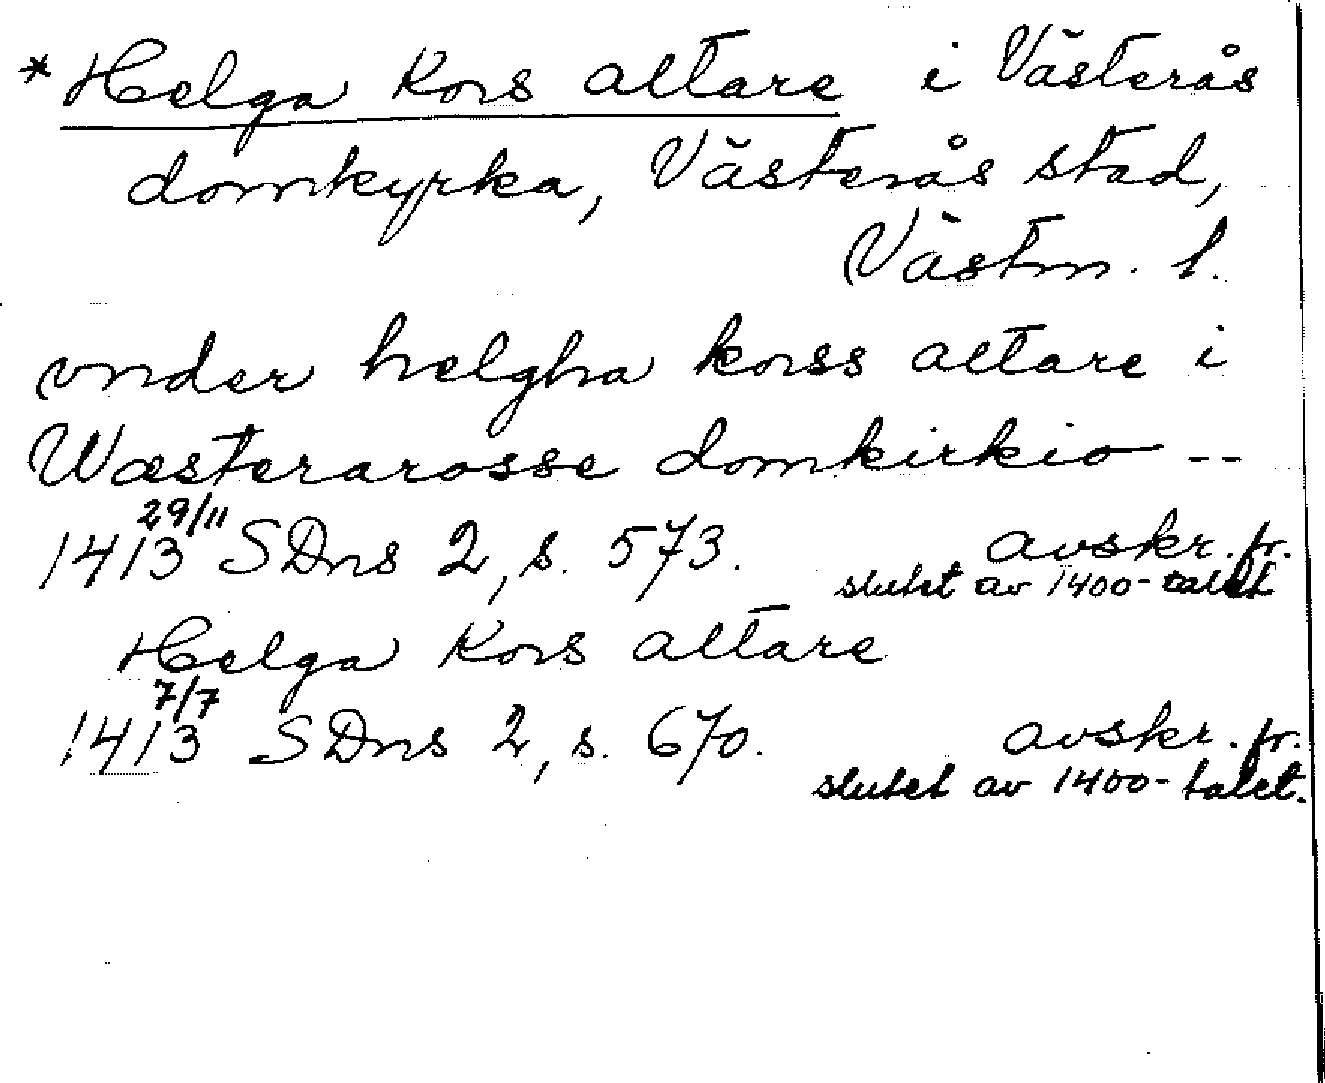 *Helga Kors altare i Västerås
domkyrka, Västerås stad,
Västm. l.
vnder helgha korss altare i
Wæsterarosse domkirkio --
1413 29/11 SDns 2, s. 573. avskr. fr.
slutet av 1400-talet
Helga Kors altare
1413 7/7 SDns 2, s. 670. avskr. fr.
slutet av 1400-talet.